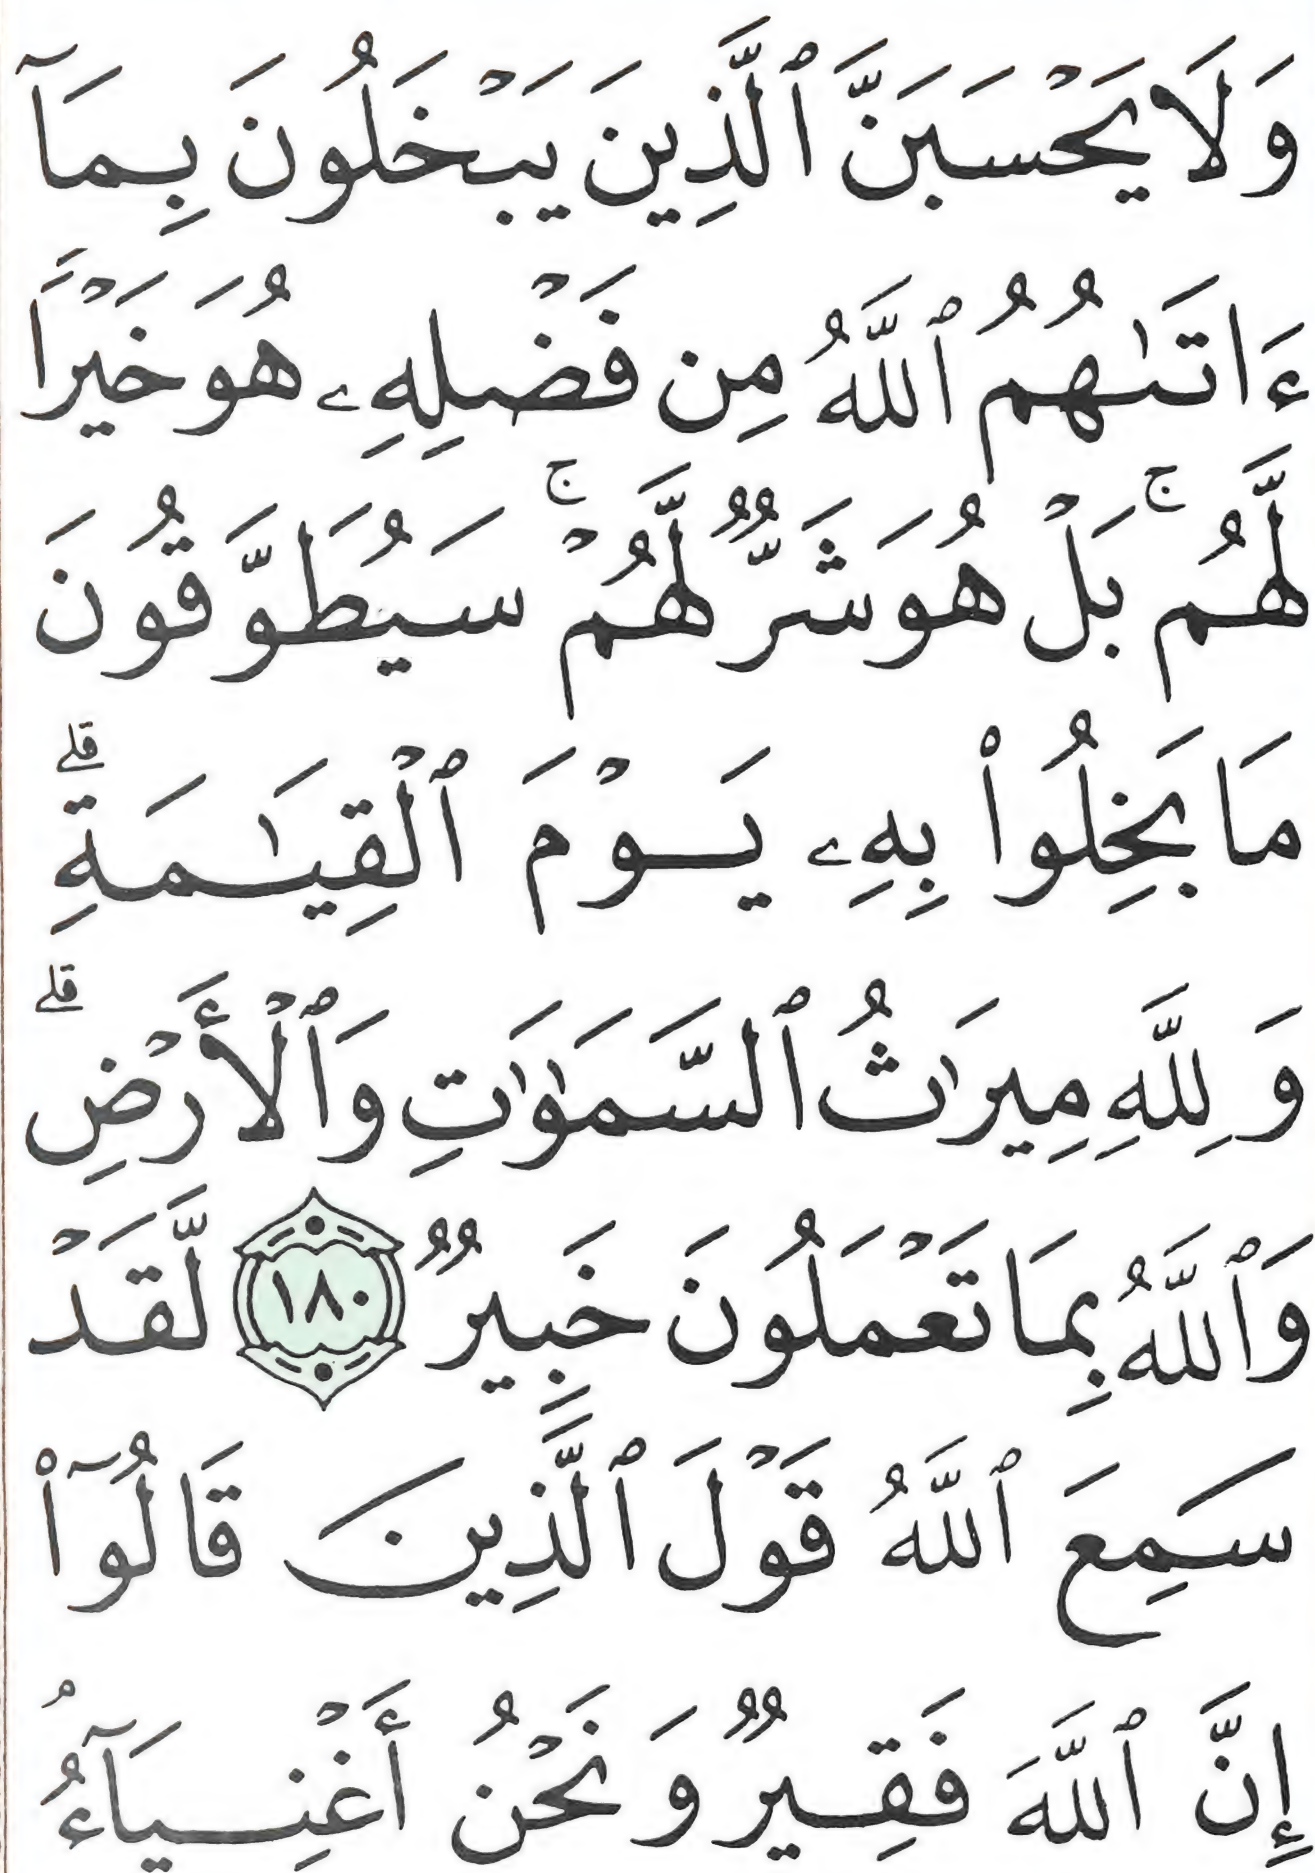 وَلَا يَحْسَبَنَّ ٱلَّذِينَ يَبْخَلُونَ بِمَآ
ءَاتَىٰهُمُ ٱللَّهُ مِن فَضْلِهِۦ هُوَ خَيْرًا
لَّهُم ۖۚ بَلْ هُوَ شَرٌّ لَّهُمْ ۚ سَيُطَوَّقُونَ
مَا بَخِلُوا۟ بِهِۦ يَوْمَ ٱلْقِيَـٰمَةِ ۗ
وَلِلَّهِ مِيرَٰثُ ٱلسَّمَـٰوَٰتِ وَٱلْأَرْضِ ۗ
وَٱللَّهُ بِمَا تَعْمَلُونَ خَبِيرٌ ١٨٠ لَّقَدْ
سَمِعَ ٱللَّهُ قَوْلَ ٱلَّذِينَ قَالُوٓا۟
إِنَّ ٱللَّهَ فَقِيرٌ وَنَحْنُ أَغْنِيَآءُ ۘ